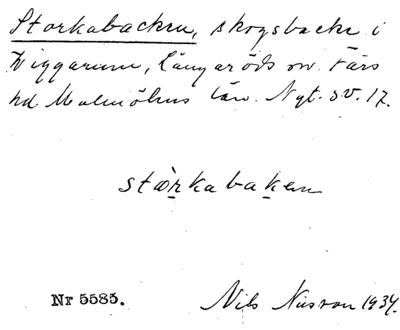 Storkabacken, skogsbacke i
Viggarum, Långaröds sn. Färs
hd Malmöhus län. Nyt. s.v. 17.
stòrkabaken
Nr 5585.
Nils Nilsson 1934.